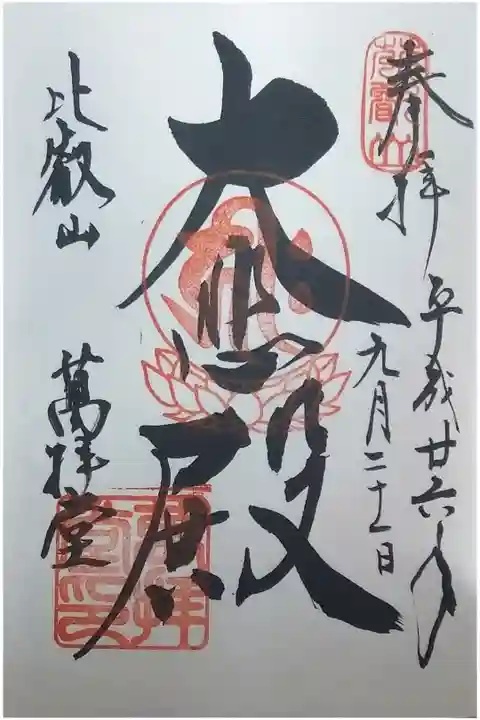 奉拝 平成廿六年
九月二十一日
大悲殿
比叡山 萬拝堂